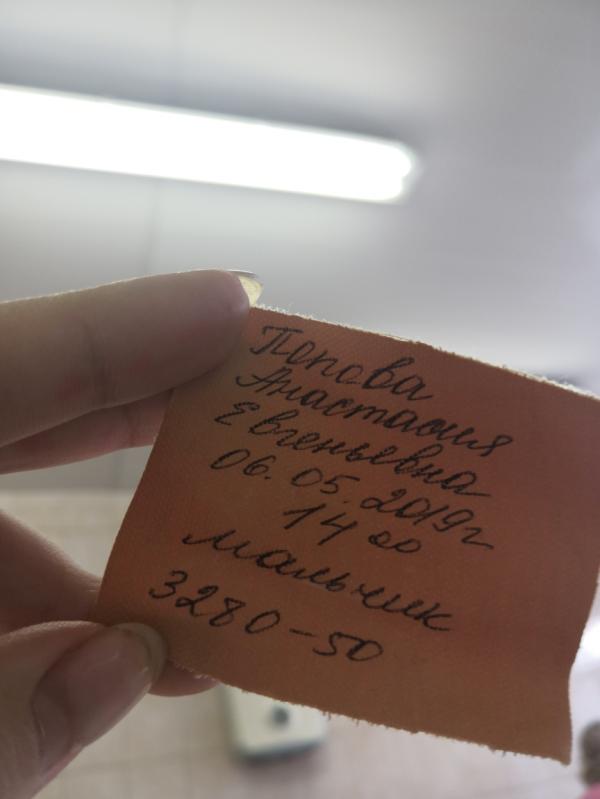 Попова
Анастасия
Евгеньевна
06.05.2019г
14 00
мальчик
3280-50